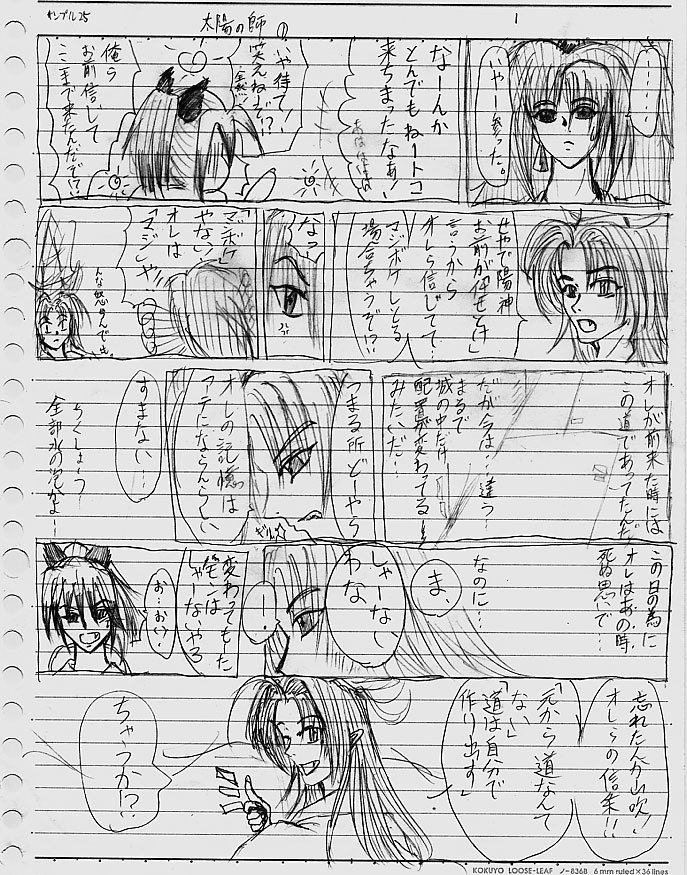 サンプル25
太陽の師
1
………
いやー参った。
なーんか
とんでもねートコ
来ちまったなぁ!
いや待て!
笑えねーぞ!?
全然!
俺ら
お前信じて
ここまで来たんだで!?
せやで陽神
お前が「任せとけ」
言うから
オレら信じてて…
マジボケしとる
場合ちゃうぞ!?
なっ
「マジボケ」
やない!
オレは
「マジ」や!
オレが前来た時には
この道であってたんだ
だが今は…違う…
まるで
城の中だけ
配置が変わってる
みたいだ…
つまる所どーやら
オレの記憶は
アテにならんらしい
ギリ
すまない…
ちくしょーっ
全部水の泡かよ…
この日の為に
オレはあの時、
死ぬ思いで…
なのに…
ま、
しゃーない
わな
…!
変わってもた
モンは
しゃーないやろ
お…おい!
忘れたんか山吹!
オレらの信条!!
「元から道なんて
ない」
「道は自分で
作り出す」
ちゃうか!?
KOKUYO LOOSE-LEAF ノ-836B 6mm ruled×36 lines